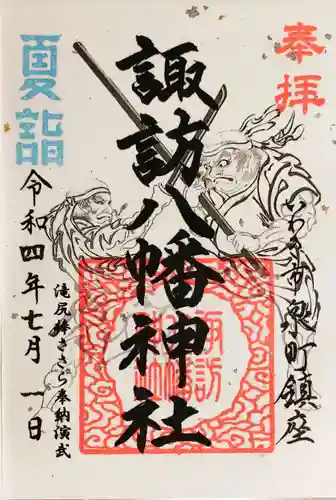 奉拝
いわき市泉町鎮座
諏訪八幡神社
夏詣
令和四年七月一日
滝尻棒ささら奉納演武